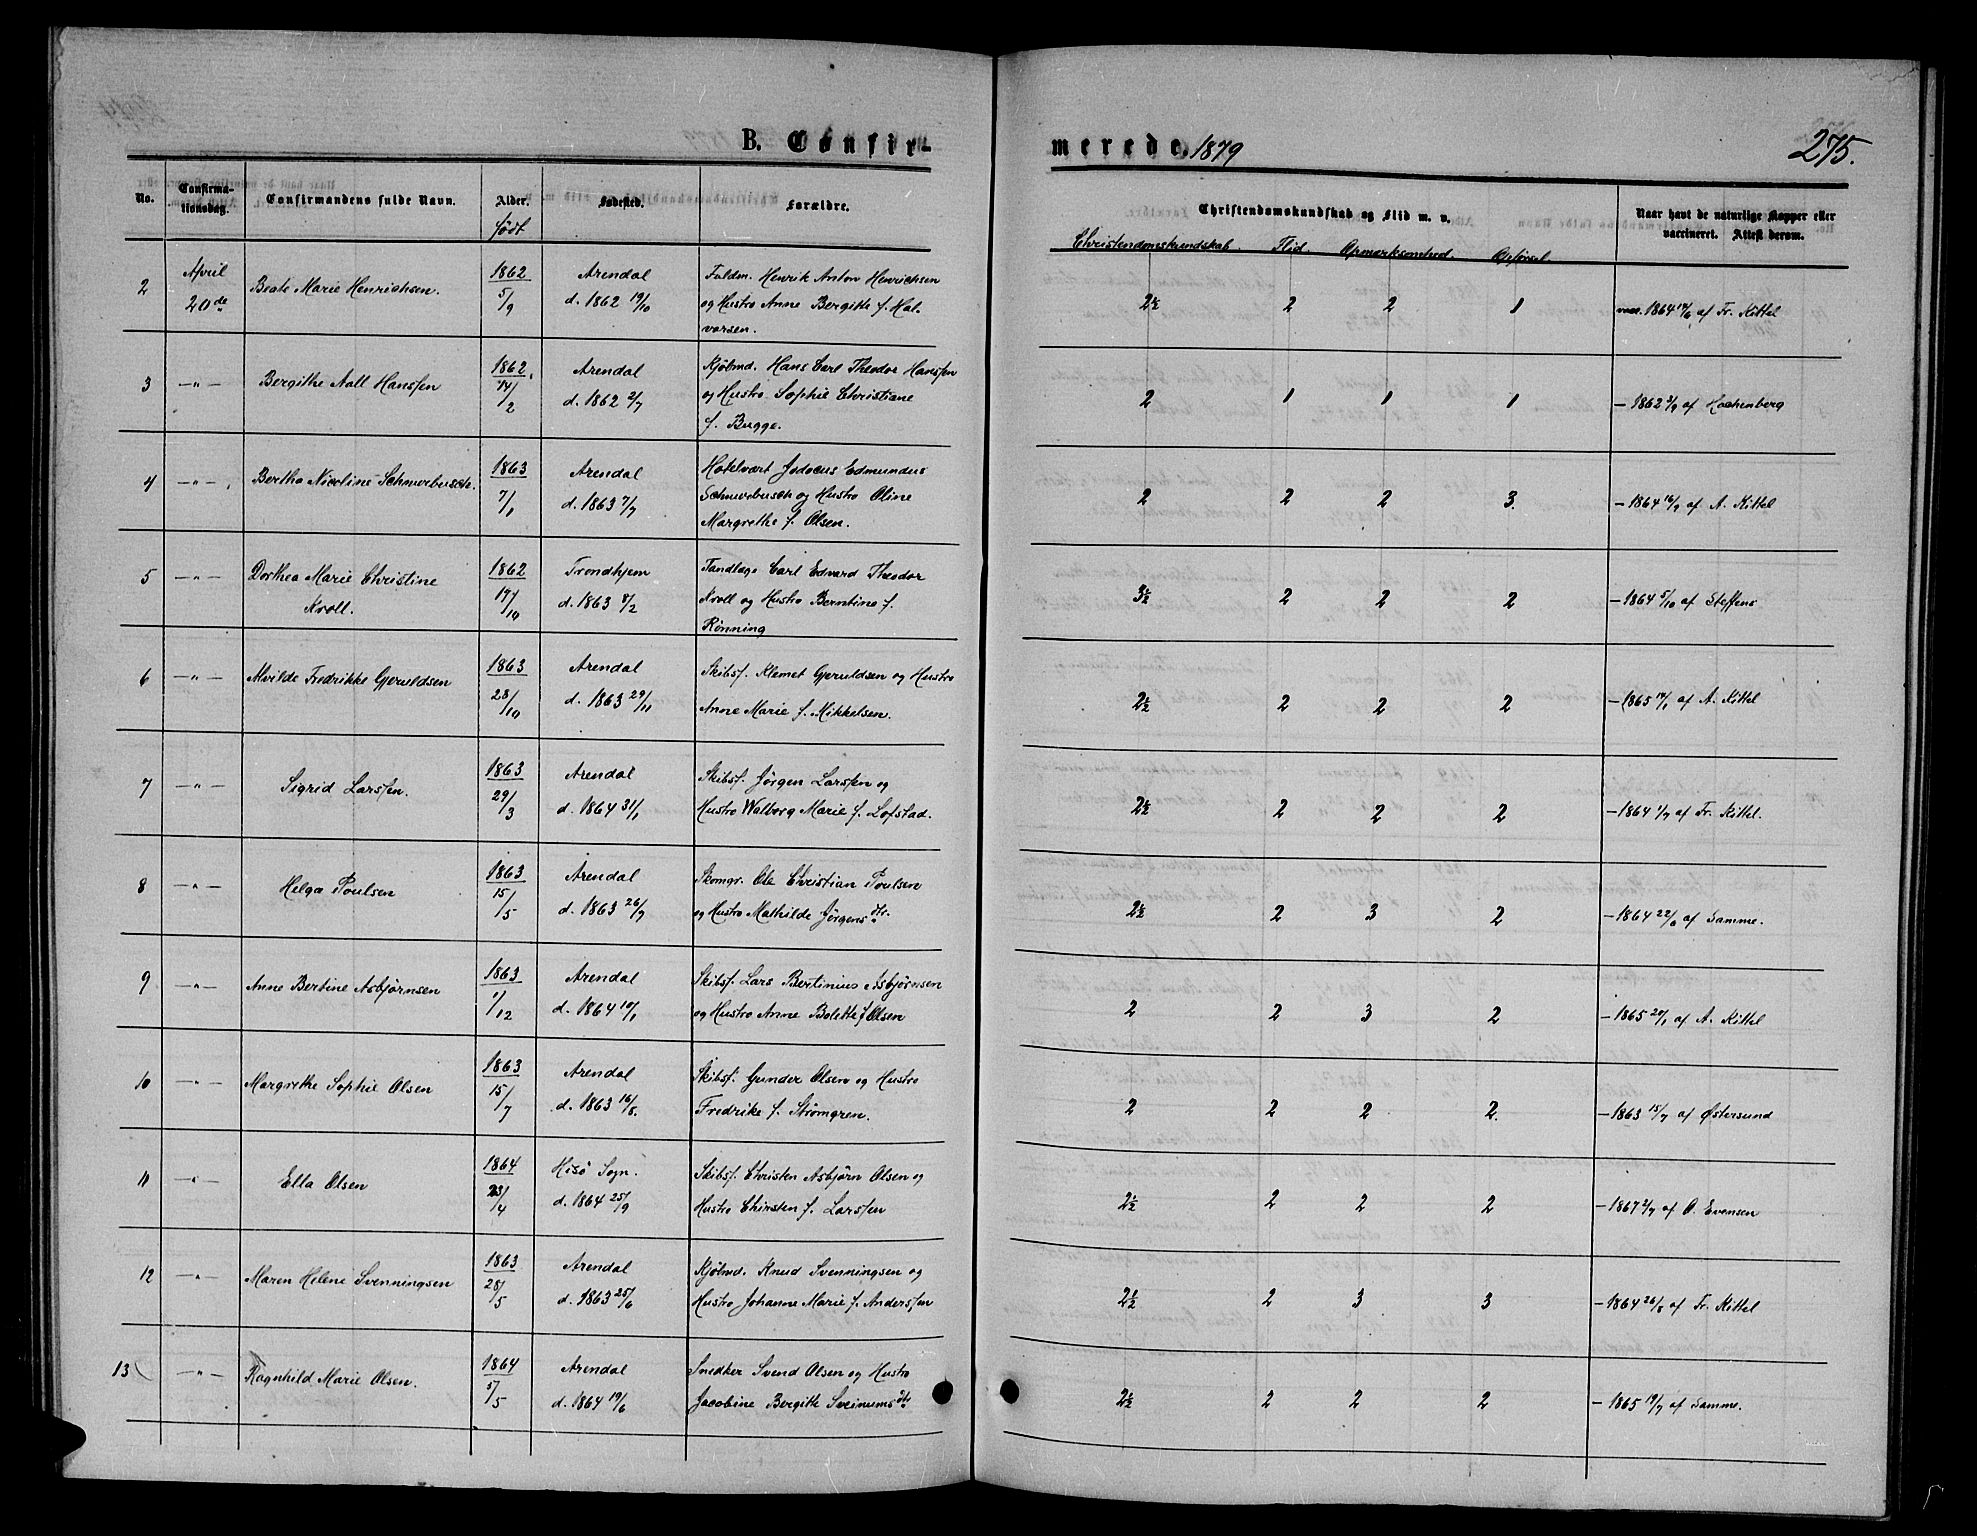 B. Confirmerede 1879 275.
No. Confirmationsdag. Confirmandens fulde Navn. Alder. født Fødested. Forældre. Christendomskundskab og Flid m. v. Naar havt de naturlige Kopper eller vaccineret. Attest derom.
Christendomskundskab. Flid. Opmærksomhed. Opførsel
2 April 20de Beate Marie Henrichsen. 1862 5/9 Arendal d. 1862 19/10 Fuldm. Henrik Anton Henrichsen og Hustro Anne Bergitte f. Halvorsen. 2½ 2 2 1 vac. 1864 14/6 af Fr. Kittel
3 —"— Bergithe Aall Hansſen 1862 14/2 Arendal d. 1862 2/7 Kjøbmd. Hans Carl Theodor Hansſen og Hustro Sophie Christiane f. Bugge. 2 1 1 1 — 1862 3/9 af Hochenberg
4 —"— Bertha Nicoline Schmerbusch. 1863 7/1 Arendal d. 1863 7/7 Hotelvært Jodocus Edmundus Schmerbusch og Hustro Oline Margrethe f. Olsen. 2 2 2 3. — 1864 16/9 af A. Kittel
5 —"— Dorthea Marie Christine Kroll. 1862 17/10 Trondhjem d. 1863 8/2 Tandlæge Carl Edvard Theodor Kroll og Hustro Berntine f. Rönning 3½ 2 2 2 — 1864 5/10 af Steffens
6 —"— Alvilde Fredrikke Gjeruldsen 1863 28/10 Arendal d. 1863 29/11 Skibsf. Klemet Gjeruldsen og Hustro Anne Marie f. Mikkelsen. 2½ 2 2 2 — 1865 14/1 af A. Kittel
7 —"— Sigrid Larsſen. 1863 29/3 Arendal d. 1864 31/1 Skibsf. Jörgen Larsſen og Hustro Walborg Marie f. Lofstad. 2½ 2 2 2 — 1864 1/7 af Fr. Kittel.
8 —"— Helga Poulsen 1863 15/5 Arendal d. 1863 26/7 Skomgr. Ole Christian Poulsen og Hustro Mathilde Jörgensdtr. 2½ 2 3 2 — 1864 22/6 af Samme.
9 —"— Anne Bertine Asbjørnsen 1863 /12 Arendal d. 1864 10/1 Skibsf. Lars Bertinius Asbjørnsen og Hustro Anne Bolette f Olsen 2 2 3 2 — 1865 20/1 af A. Kittel
10 —"— Margrethe Sophie Olsen 1863 15/7 Arendal d. 1863 16/8. Skibsf. Gunder Olsen og Hustro Fredrike f. Strømgren. 2 2 2 2. — 1863 15/7 af Østersund
11 —"— Ella Olsen 1864 23/4 Hisö Sogn. d. 1864 25/9 Skibsf. Christen Asbjørn Olsen og Hustro Chirsten f. Larsſen 2½ 2 2 2 — 1867 2/7 af O. Evensen
12 —"— Maren Helene Svenningsen 1863 28/5 Arendal d. 1863 25/6 Kjøbmd. Knud Svenningsen og Hustro Johanne Marie f. Andersſen 2½ 2 3 3 — 1864 26/8 af Fr. Kittel
13 —"— Ragnhild Marie Olsen. 1864 5/5 Arendal d. 1864 19/6 Snedker Svend Olsen og Hustro Jacobine Bergitte Sveinumsdtr 2½ 2 2 2 — 1865 19/7 af Samme.